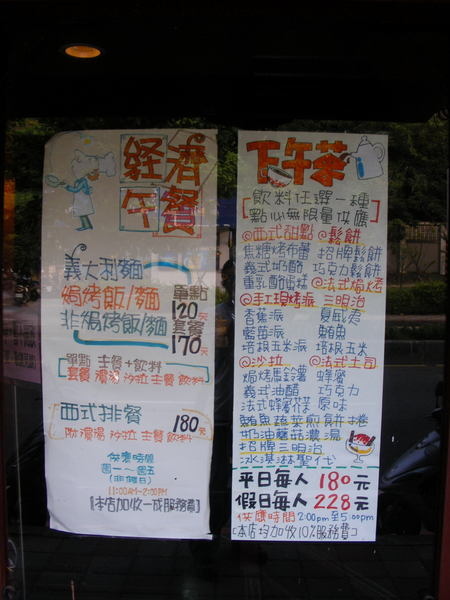 經濟
午餐
義大利麵
焗烤飯/麵
非焗烤飯/麵
單點
120元
套餐
170元
單點 主餐+飲料
套餐 濃湯 沙拉 主餐 飲料
西式排餐 180元
附濃湯 沙拉 主餐 飲料
供應時間
週一~週五
(非假日)
11:00AM~2:00PM
【本店加收一成服務費】
下午茶
飲料任選一種
點心無限量供應
◎西式甜點
焦糖烤布蕾
義式奶酪
重乳酪蛋糕
◎手工現烤派
香蕉派
藍莓派
培根玉米派
◎沙拉
焗烤馬鈴薯
義式油醋
法式蜂蜜芥末
◎鬆餅
招牌鬆餅
巧克力鬆餅
◎法式焗烤
三明治
夏威夷
鮪魚
培根玉米
◎法式土司
蜂蜜
巧克力
原味
鮪魚蔬菜煎餅捲
奶油蘑菇濃湯
招牌三明治
冰淇淋聖代
平日每人 180元
假日每人 228元
供應時間 2:00pm至5:00pm
【本店均加收10%服務費】